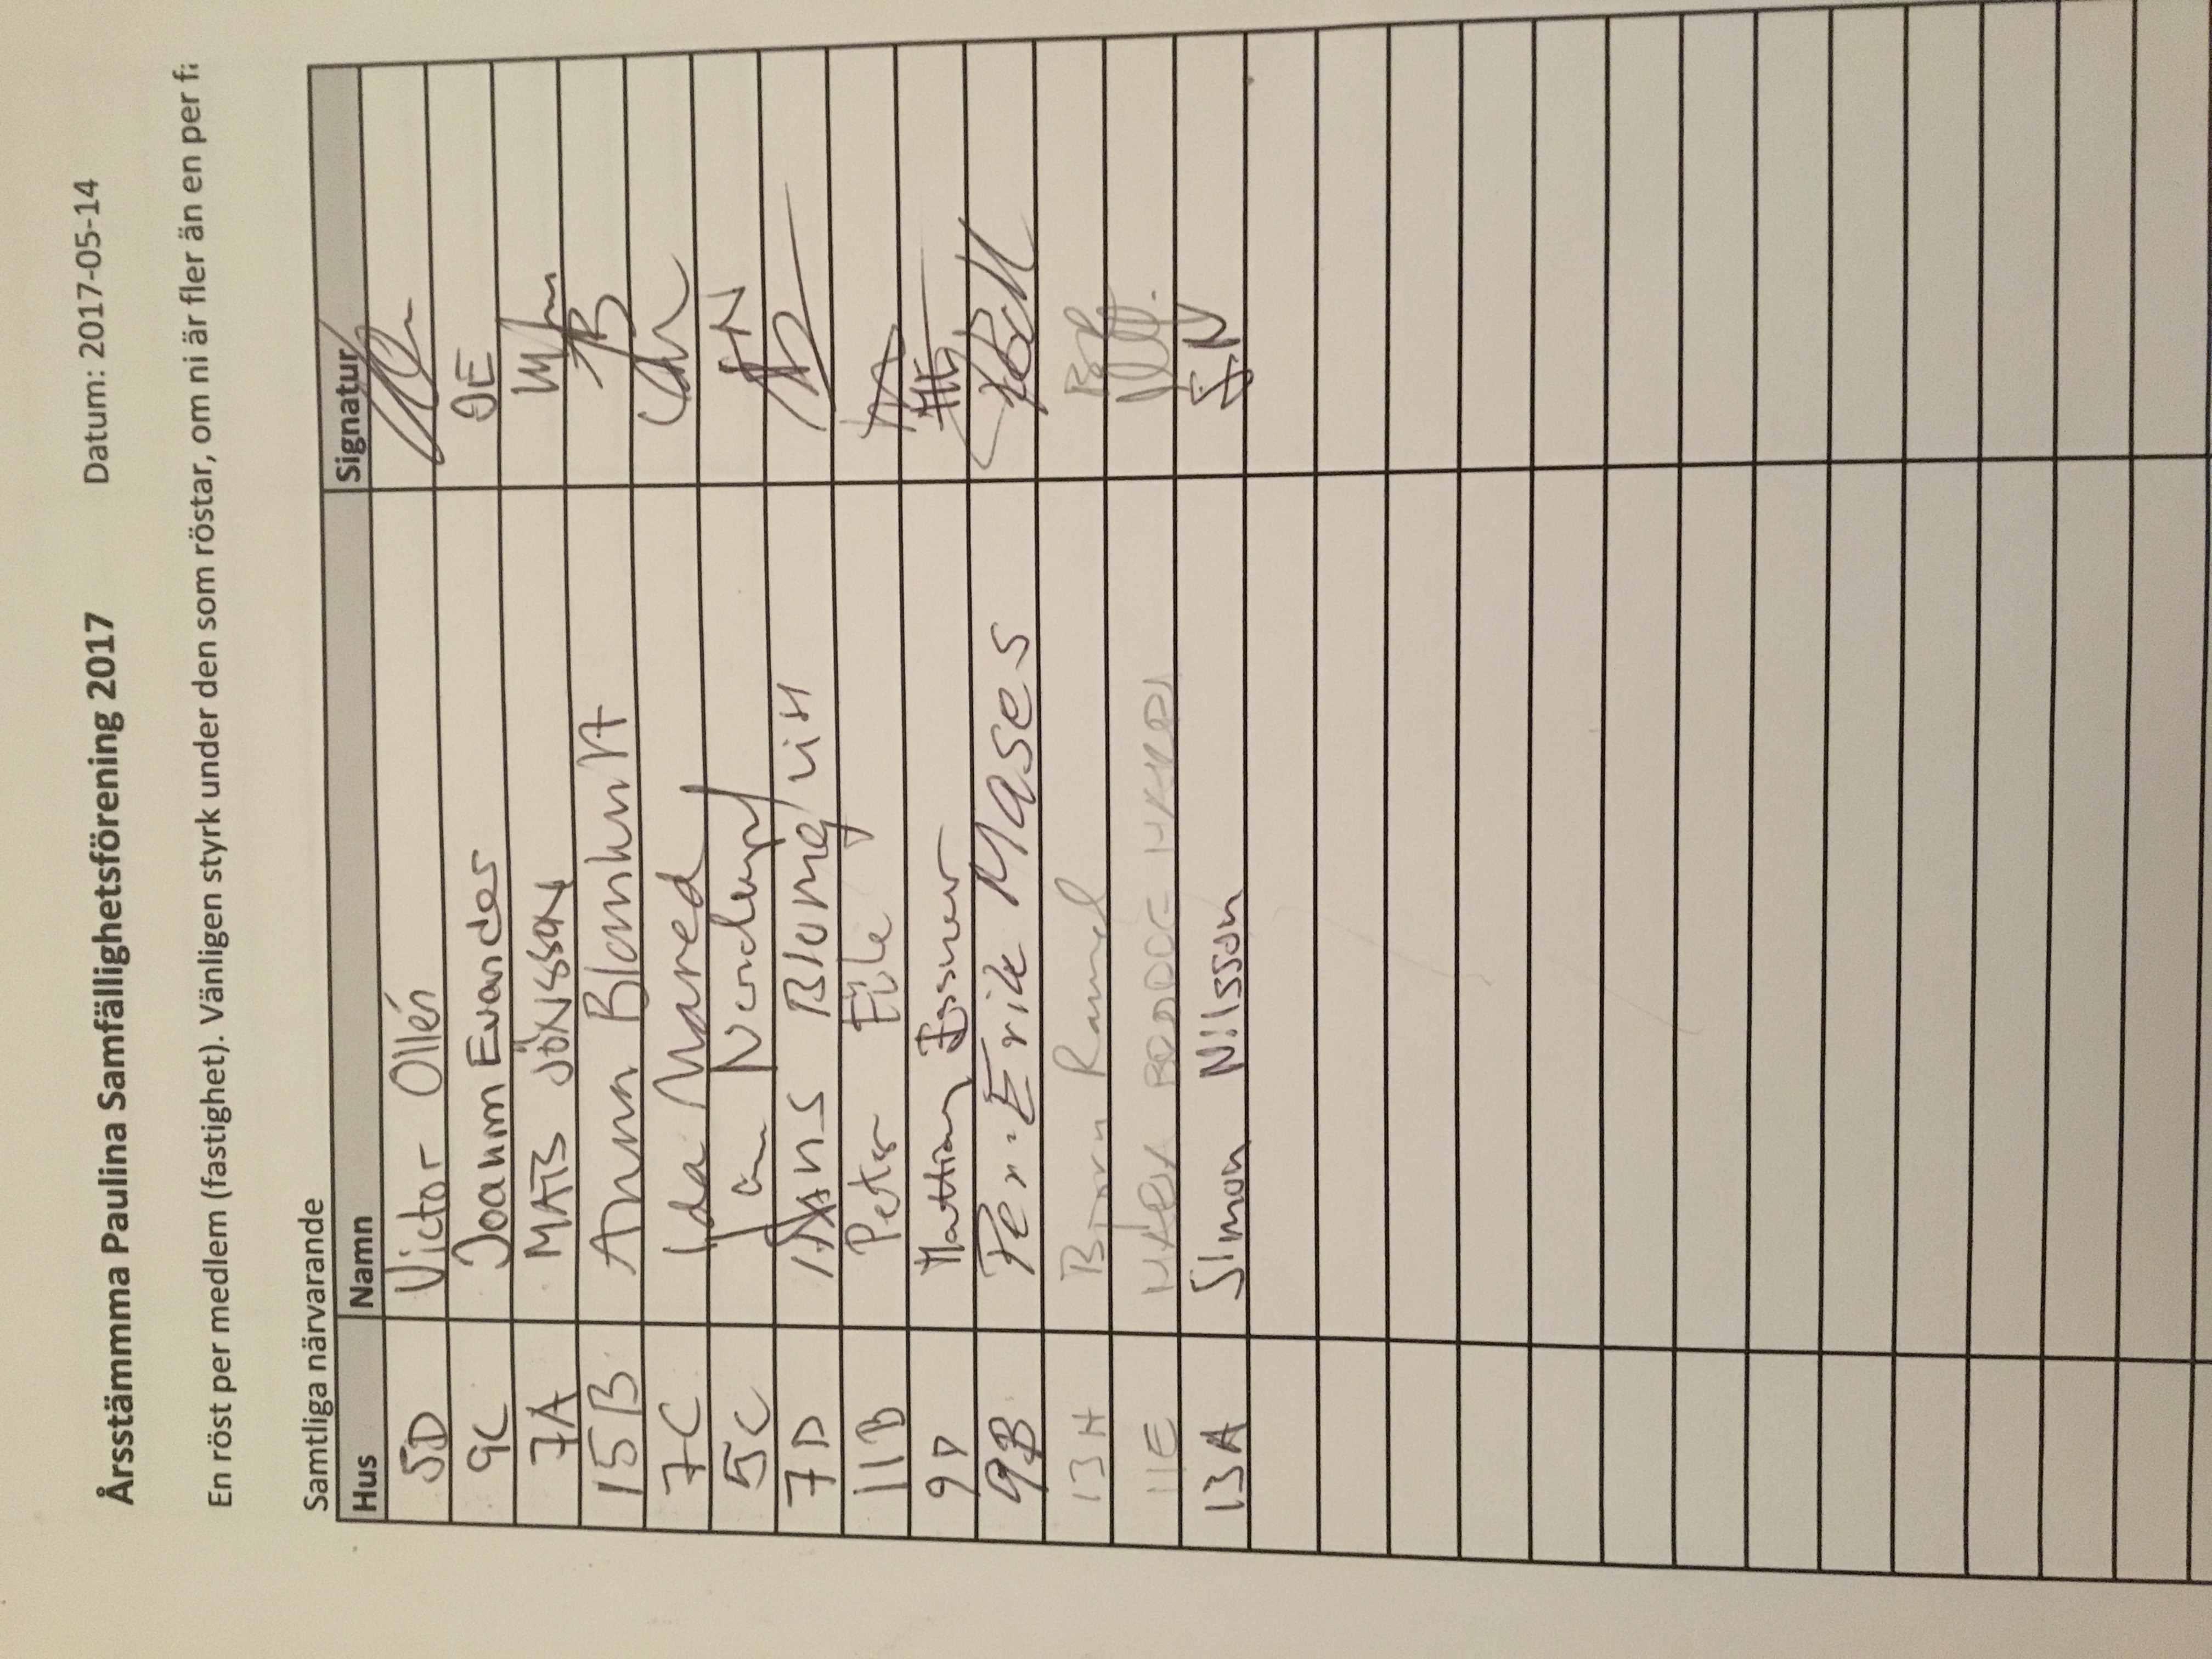 Årsstämma Paulina Samfällighetsförening 2017 Datum: 2017-05-14
En röst per medlem (fastighet). Vänligen styrk under den som röstar, om ni är fler än en per
Samtliga närvarande
Hus Namn Signatur
5D Victor Ollén
9C Joahim Evander JE
7A MATS JÖNSSON
15B Anna AB
7C Ida Mared
5C
7D Hans Blomqvist
11B Peter
9D Mattias
9B Per-Erik Mases
13H Björn
11E
13A Simon Nilsson S.N